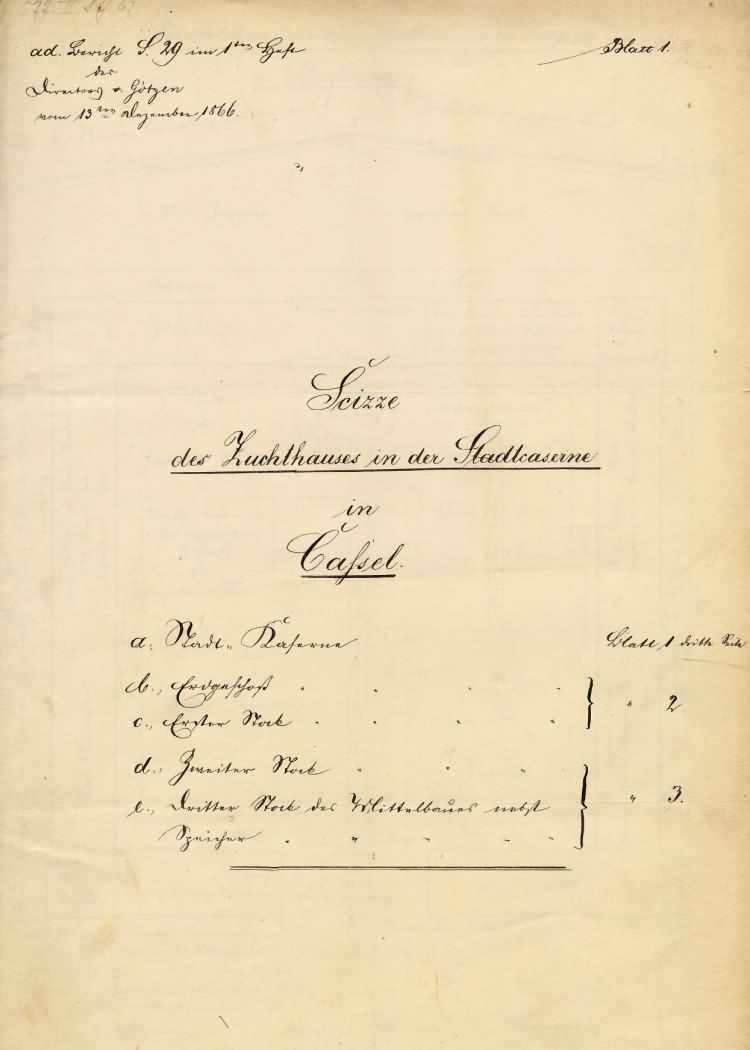 ad. Bericht S. 29 im 1ten Heft
des
Directors v Götzen
vom 13ten Dezember 1866.
Blatt 1.
Scizze
des Zuchthauses in der Stadtcaserne
in
Caſsel.
a. Stadt-Kaserne Blatt 1 dritte Seite
b., Erdgeschoß
c., Erster Stock " 2
d., Zweiter Stock
e., Dritter Stock des Mittelbaues nebst
Speicher " 3.